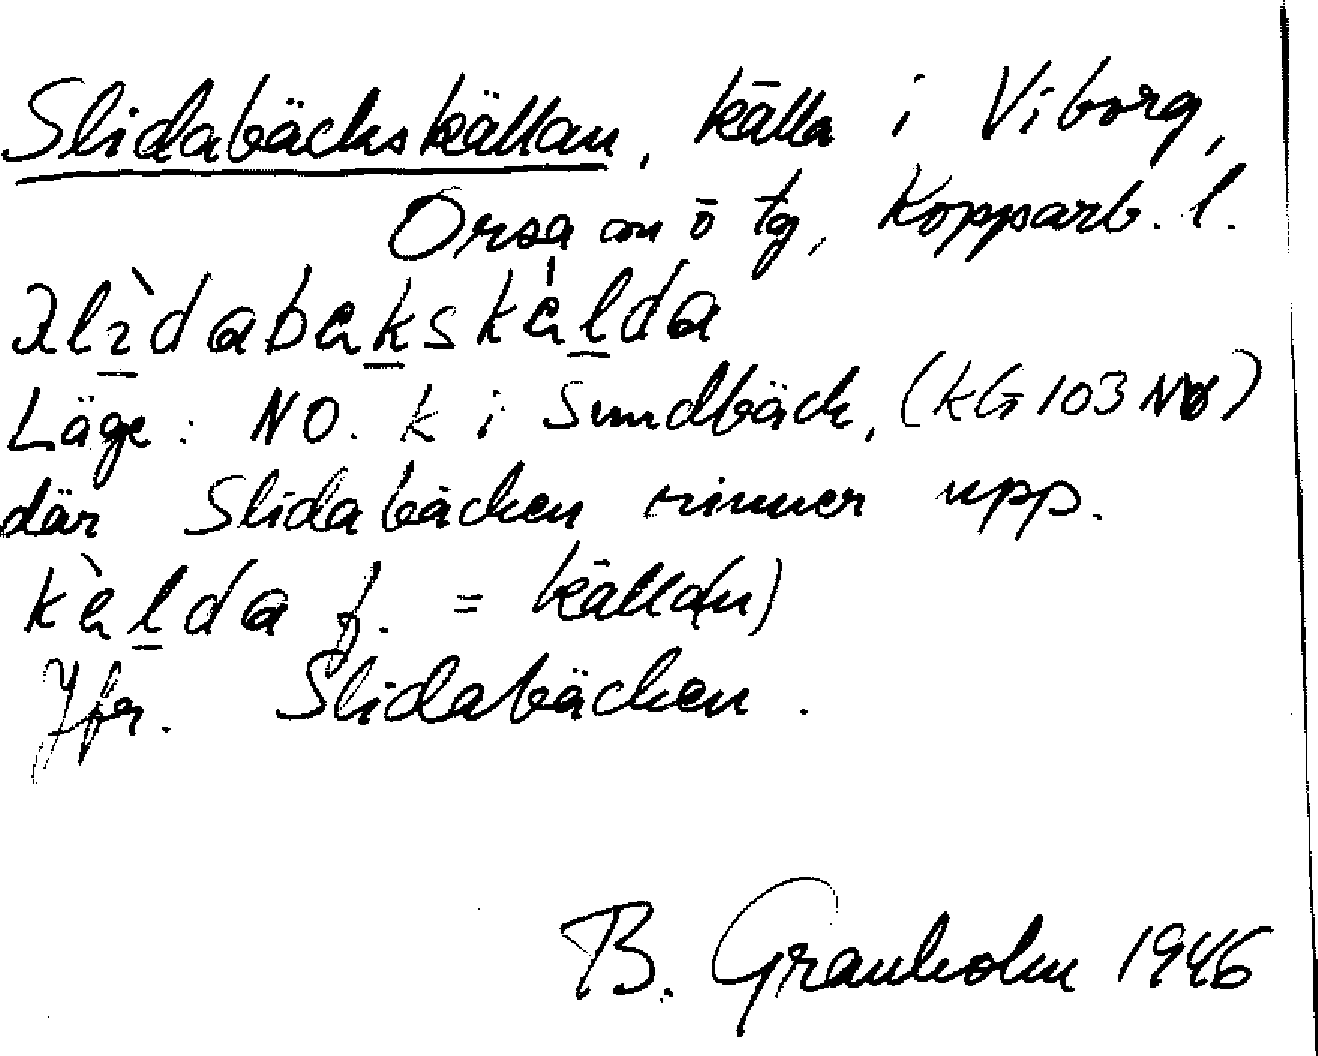 Slidabäckskällan, källa i Viborg,
Orsa sn ö tg, Kopparb. l.
Läge: NO. k i Sundbäck, (kG 103 NO)
där Slidabäcken rinner upp.
kälda f. = källa(n)
Jfr. Slidabäcken.
B. Granholm 1946